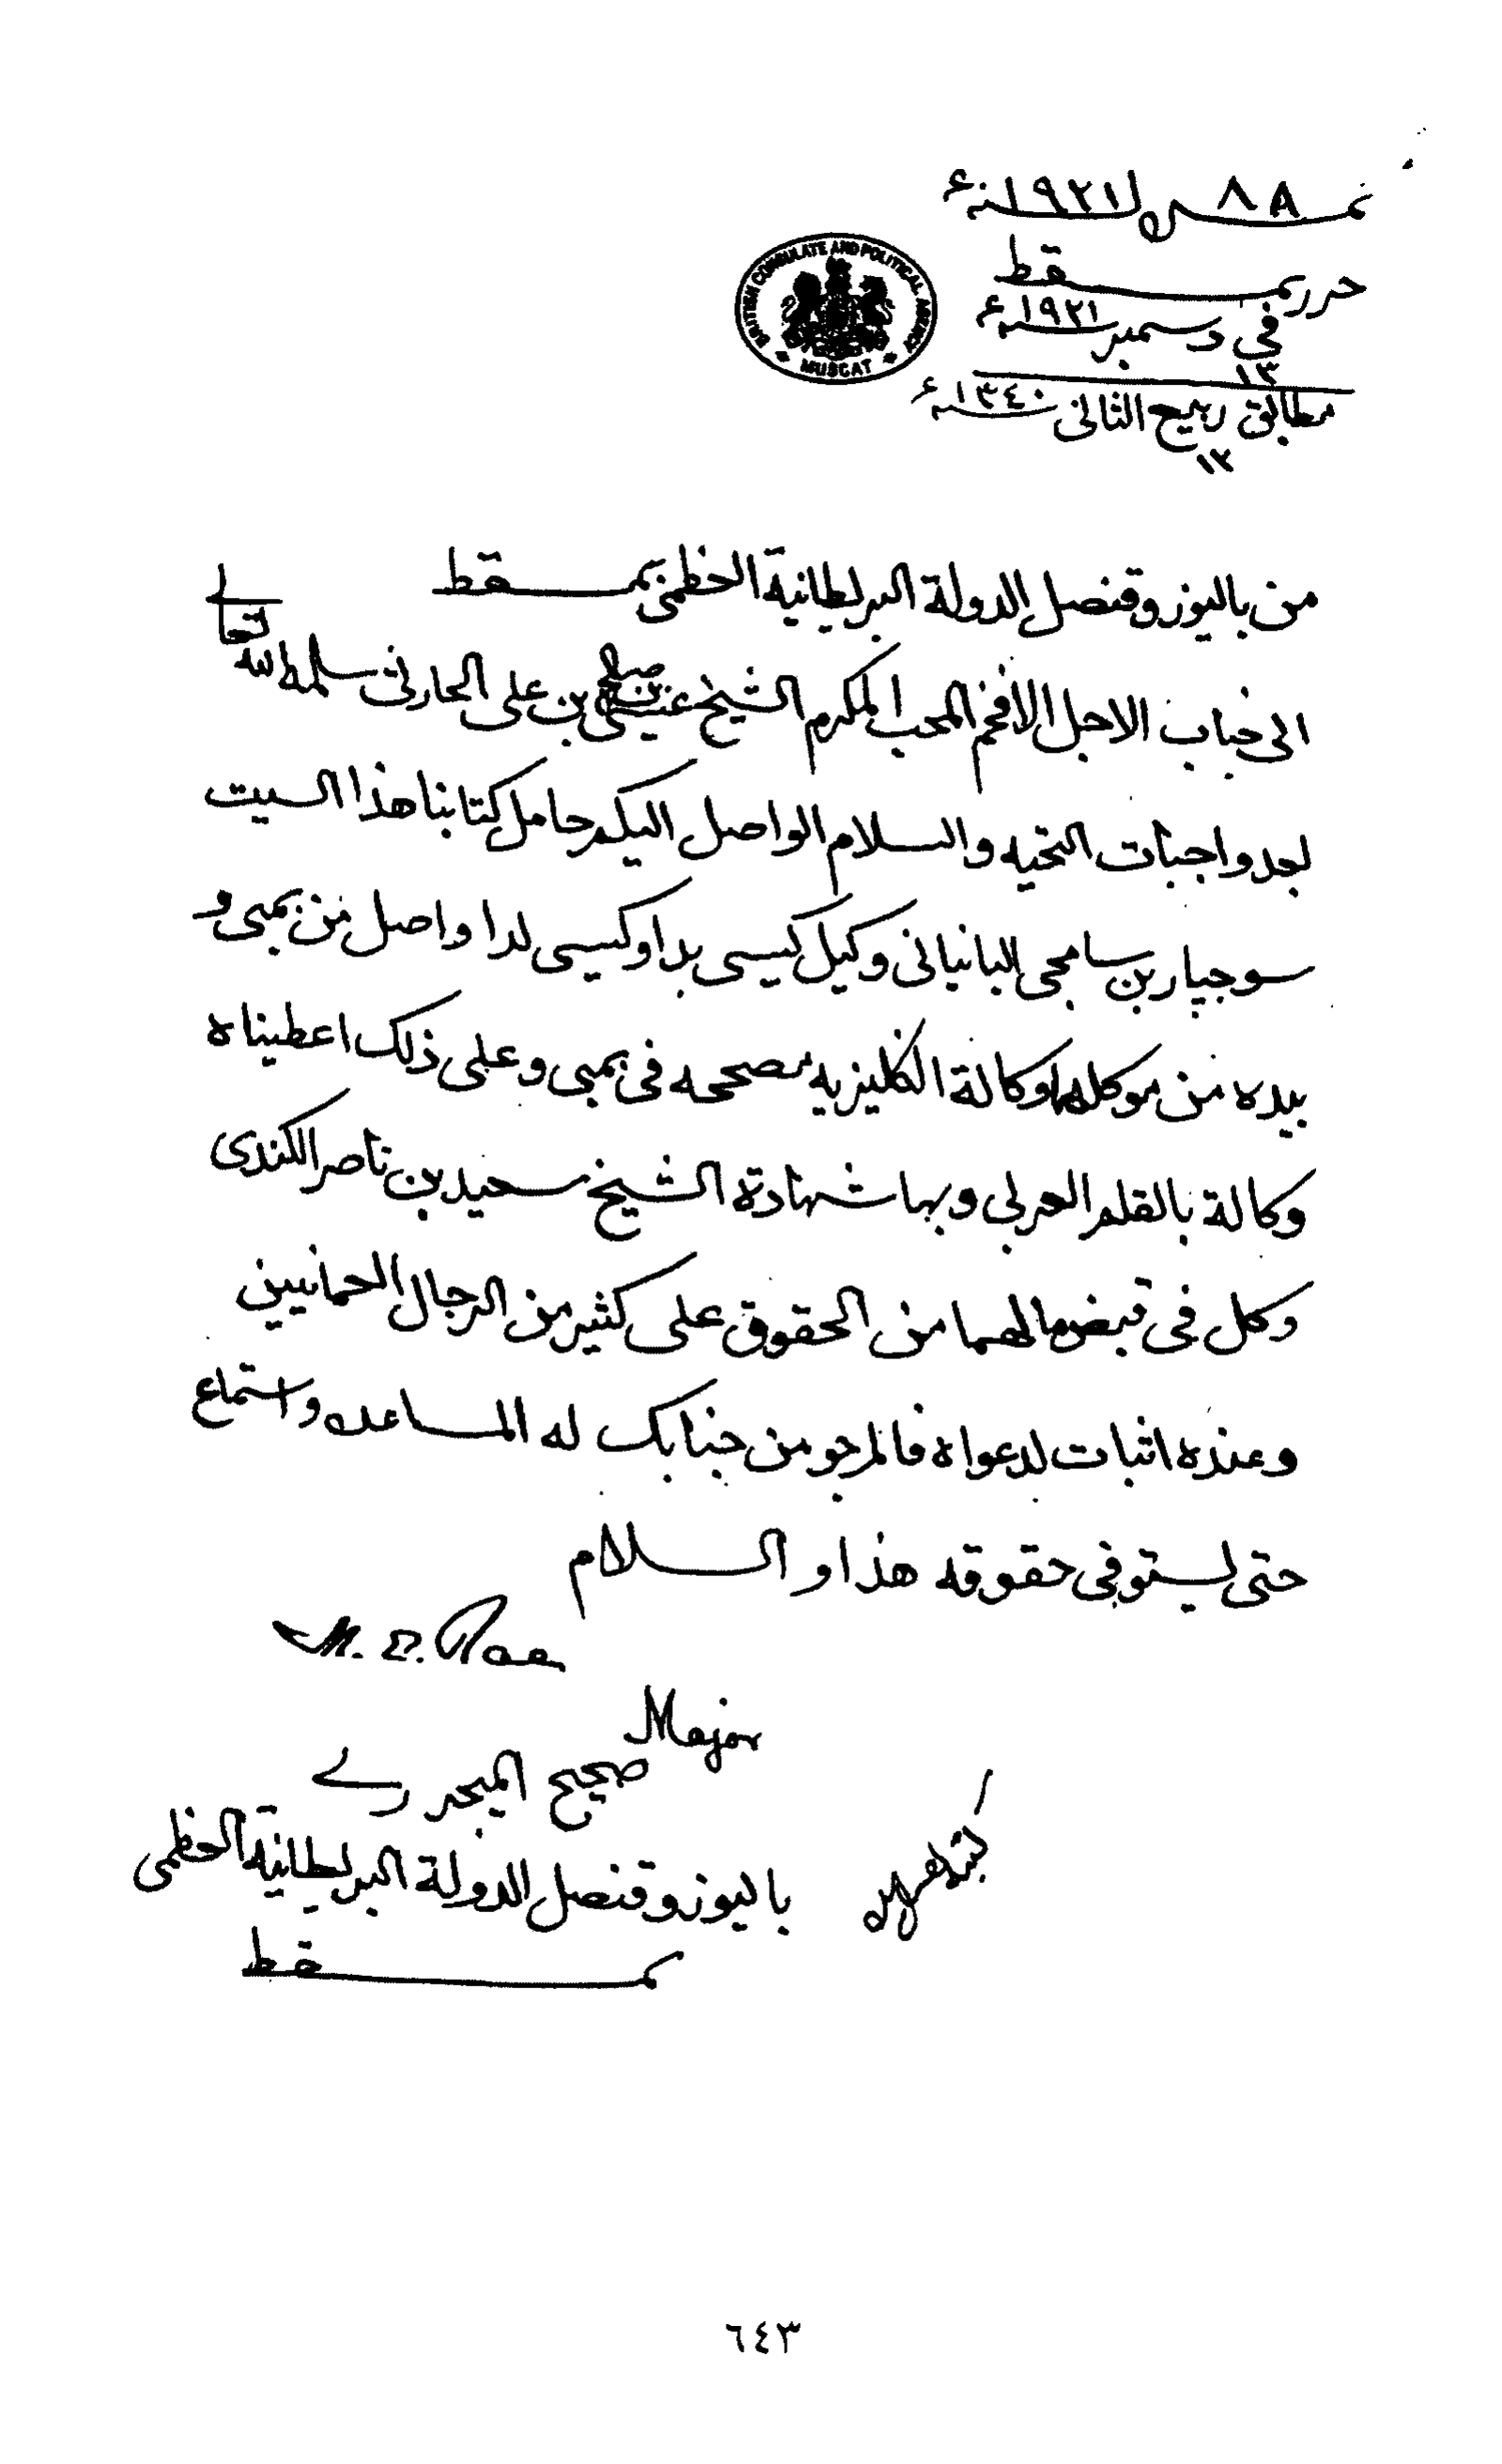 نمرة ٨٨ ل ١٩٢١ سنة ء
حرر بمسقط
BRITISH CONSULATE AND POLITICAL AGENCY MUSCAT
في ١٣ دسمبر سنة ١٩٢١ء
مطابق ١٢ ربيع الثاني سنة ١٣٤٠ء
من باليوز وقنصل الدولة البريطانية العظمى بمسقط
الى جناب الاجل الافخم المحب المكرم الشيخ عيسى بن صالح بن علي الحارثي سلمه الله تعالى
بعد واجبات التحيه والسلام الواصل اليكم حامل كتابنا هذا السيت
بن سامجي البانياني وكيل كيسي واصل من بمبى و
بيده من موكله وكالة انكليزيه مصححه في بمبى وعلى ذلك اعطيناه
وكالة بالقلم العربي وبها شهادة الشيخ سعيد بن ناصر الكندى
وكل في قبض مالهما من الحقوق على كثير من الرجال العمانيين
وعنده اثبات لدعواه فالمرجو من جنابك له المساعده واستماع
حتى يستوفى حقوقه هذا والسلام
Major
صحيح الميجر رے
باليوز وقنصل الدولة البريطانية العظمى
بمسقط
٦٤٣